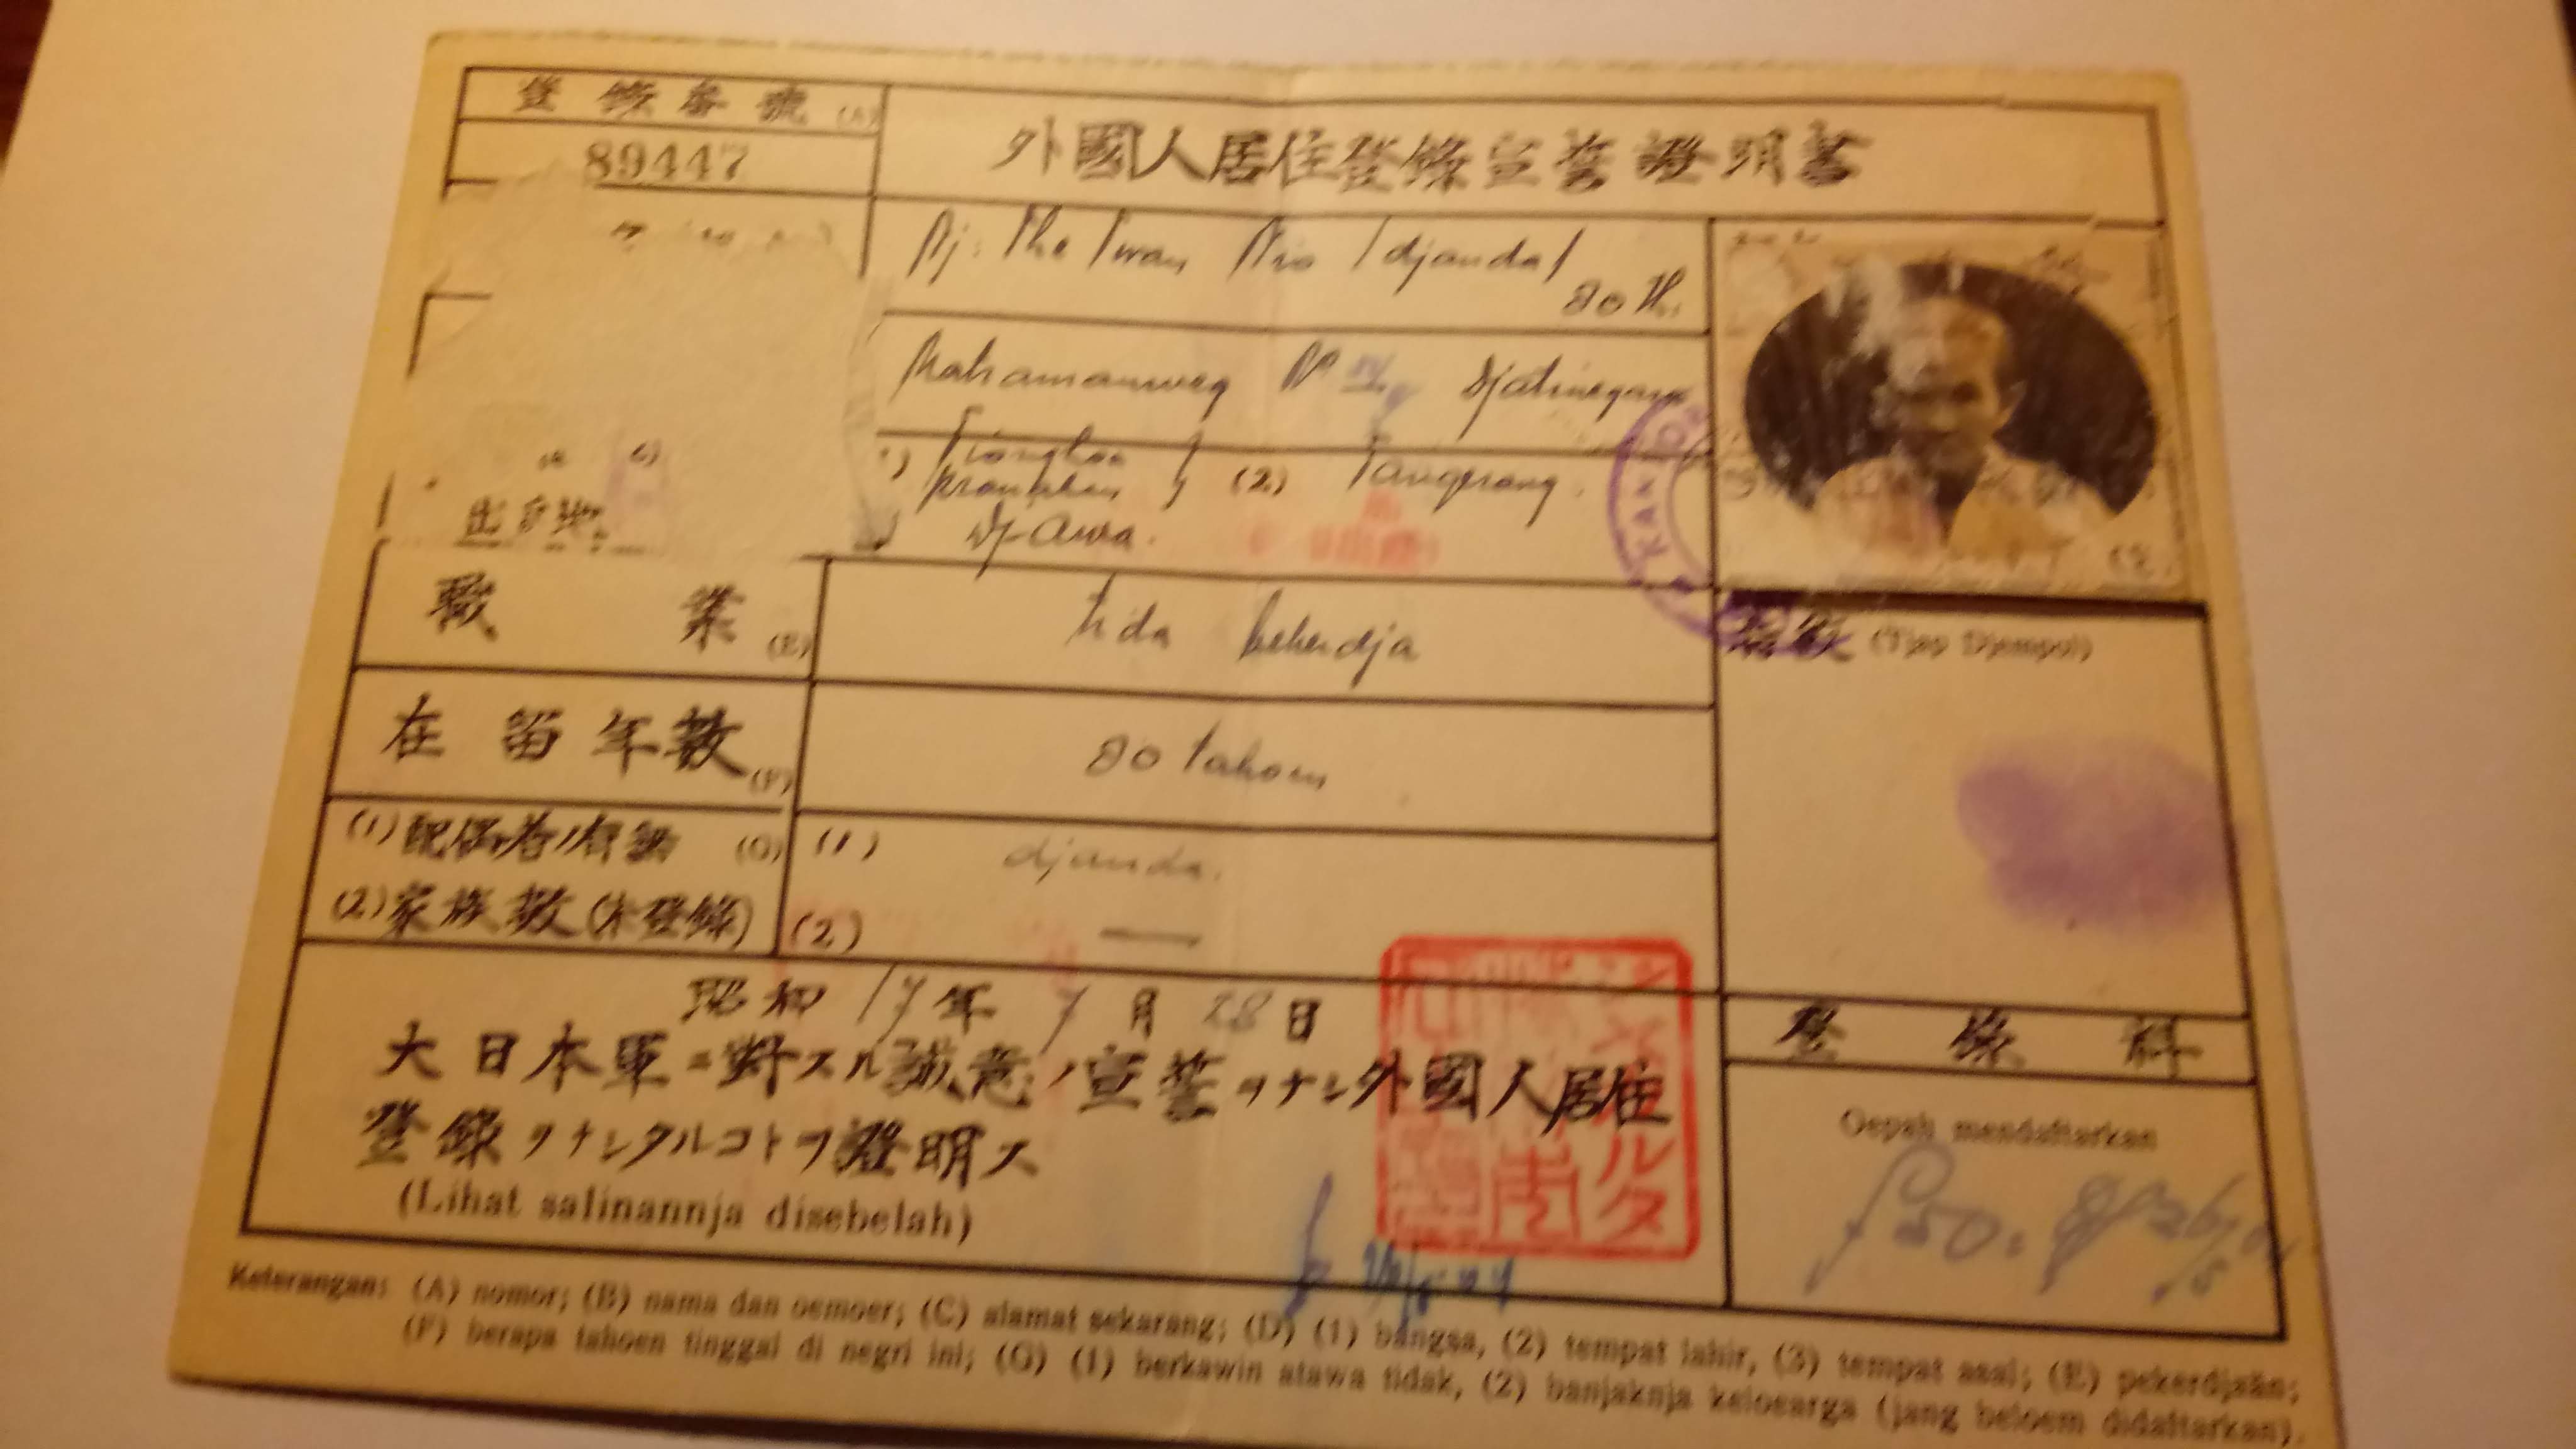 登錄番號 (A)
89447
外國人居住登錄宣誓證明書
The Twan Nio /djanda/
80 th.
Matramanweg Djatinegara
Tionghoa
pranakan (2) Tangerang.
Djawa.
出身地
職業 (E)
tida bekerdja
指紋 (Tjap Djempol)
在留年數 (F)
80 tahoen
(1) 配偶者ノ有無 (G) (1) djanda.
(2) 家族數 (未登錄) (2) —
昭和 17 年 7 月 28 日
大日本軍ニ對スル誠意ノ宣誓ヲナシ外國人居住
登錄ヲナシタルコトヲ證明ス
(Lihat salinannja disebelah)
登錄料
Oepah mendaftarkan
Keterangan: (A) nomor; (B) nama dan oemoer; (C) alamat sekarang; (D) (1) bangsa, (2) tempat lahir, (3) tempat asal; (E) pekerdjaän;
(F) berapa tahoen tinggal di negri ini; (G) (1) berkawin atawa tidak, (2) banjaknja keloearga (jang beloem didaftarkan).